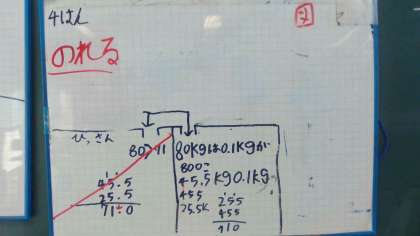 41さん
のれる
ひっさん
80>71
45.5
25.5
71.0
80kgは0.1kgが
800こ
45.5kg0.1kg
455
255
255
455
710